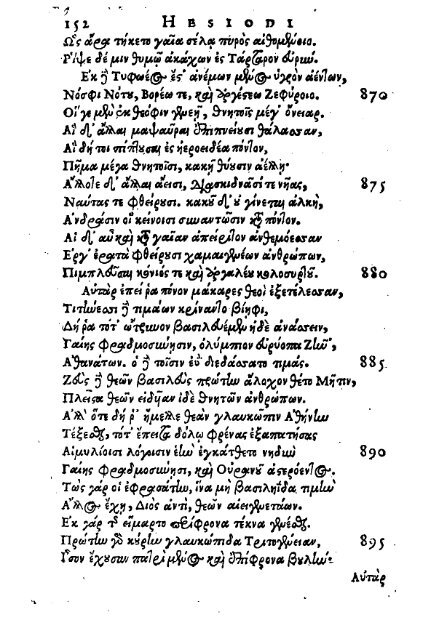 152 HESIODI
Ὣς ἄρα τήκετο γαῖα σέλα πυρὸς αἰθομένοιο.
Ῥῖψε δέ μιν θυμῷ ἀκαχὼν ἐς Τάρταρον εὐρύν.
Ἐκ δὲ Τυφωέος ἔς' ἀνέμων μένος ὑγρὸν ἀέντων,
Νόσφι Νότου, Βορέω τε, καὶ ἀργέςεω Ζεφύροιο. 870
Οἵ γε μὲν ἐκ θεόφιν γενεὴ, θνητοῖς μέγ' ὄνειαρ.
Αἱ δ' ἄλλαι μαψαῦραι ἐπιπνείουσι θάλασσαν,
Αἳ δή τοι πίπτουσαι ἐς ἠεροειδέα πόντον,
Πῆμα μέγα θνητοῖσι, κακῇ θύουσιν ἀέλλῃ·
Ἄλλοτε δ' ἄλλαι ἀεῖσι, διασκιδνᾶσί τε νῆας, 875
Ναύτας τε φθείρουσι. κακοῦ δ' οὐ γίνεται ἀλκὴ,
Ἀνδράσιν οἳ κείνοισι συναντῶσιν κατὰ πόντον.
Αἱ δ' αὖ καὶ κατὰ γαῖαν ἀπείριτον ἀνθεμόεσσαν
Ἔργ' ἐρατὰ φθείρουσι χαμαιγενέων ἀνθρώπων,
Πιμπλεῦσαι κόνιός τε καὶ ἀργαλέου κολοσυρτοῦ. 880
Αὐτὰρ ἐπεί ῥα πόνον μάκαρες θεοὶ ἐξετέλεσσαν,
Τιτήνεσσι δὲ τιμάων κρίναντο βίηφι,
Δή ῥα τότ' ὤτρυνον βασιλευέμεν ἠδὲ ἀνάσσειν,
Γαίης φραδμοσύνῃσιν, ὀλύμπιον εὐρύοπα Ζῆν',
Ἀθανάτων. ὁ δὲ τοῖσιν ἐῢ διεδάσσατο τιμάς. 885
Ζεὺς δὲ θεῶν βασιλεὺς πρώτην ἄλοχον θέτο Μῆτιν,
Πλεῖςα θεῶν εἰδυῖαν ἰδὲ θνητῶν ἀνθρώπων.
Ἀλλ' ὅτε δή ῥ' ἤμελλε θεὰν γλαυκῶπιν Ἀθήνην
Τέξεσθαι, τότ' ἔπειτα δόλῳ φρένας ἐξαπατήσας
Αἱμυλίοισι λόγοισιν ἑὴν ἐγκάτθετο νηδὺν 890
Γαίης φραδμοσύνῃσιν, καὶ Οὐρανοῦ ἀςερόεντος.
Τὼς γάρ οἱ ἐφρασάτην, ἵνα μὴ βασιληΐδα τιμὴν
Ἄλλος ἔχῃ, Διὸς ἀντὶ, θεῶν αἰειγενετάων.
Ἐκ γὰρ τῆς εἵμαρτο περίφρονα τέκνα γενέσθαι.
Πρώτην μὲν κούρην γλαυκώπιδα Τριτογένειαν, 895
Ἶσον ἔχουσαν πατρὶ μένος καὶ ἐπίφρονα βουλήν·
Αὐτὰρ